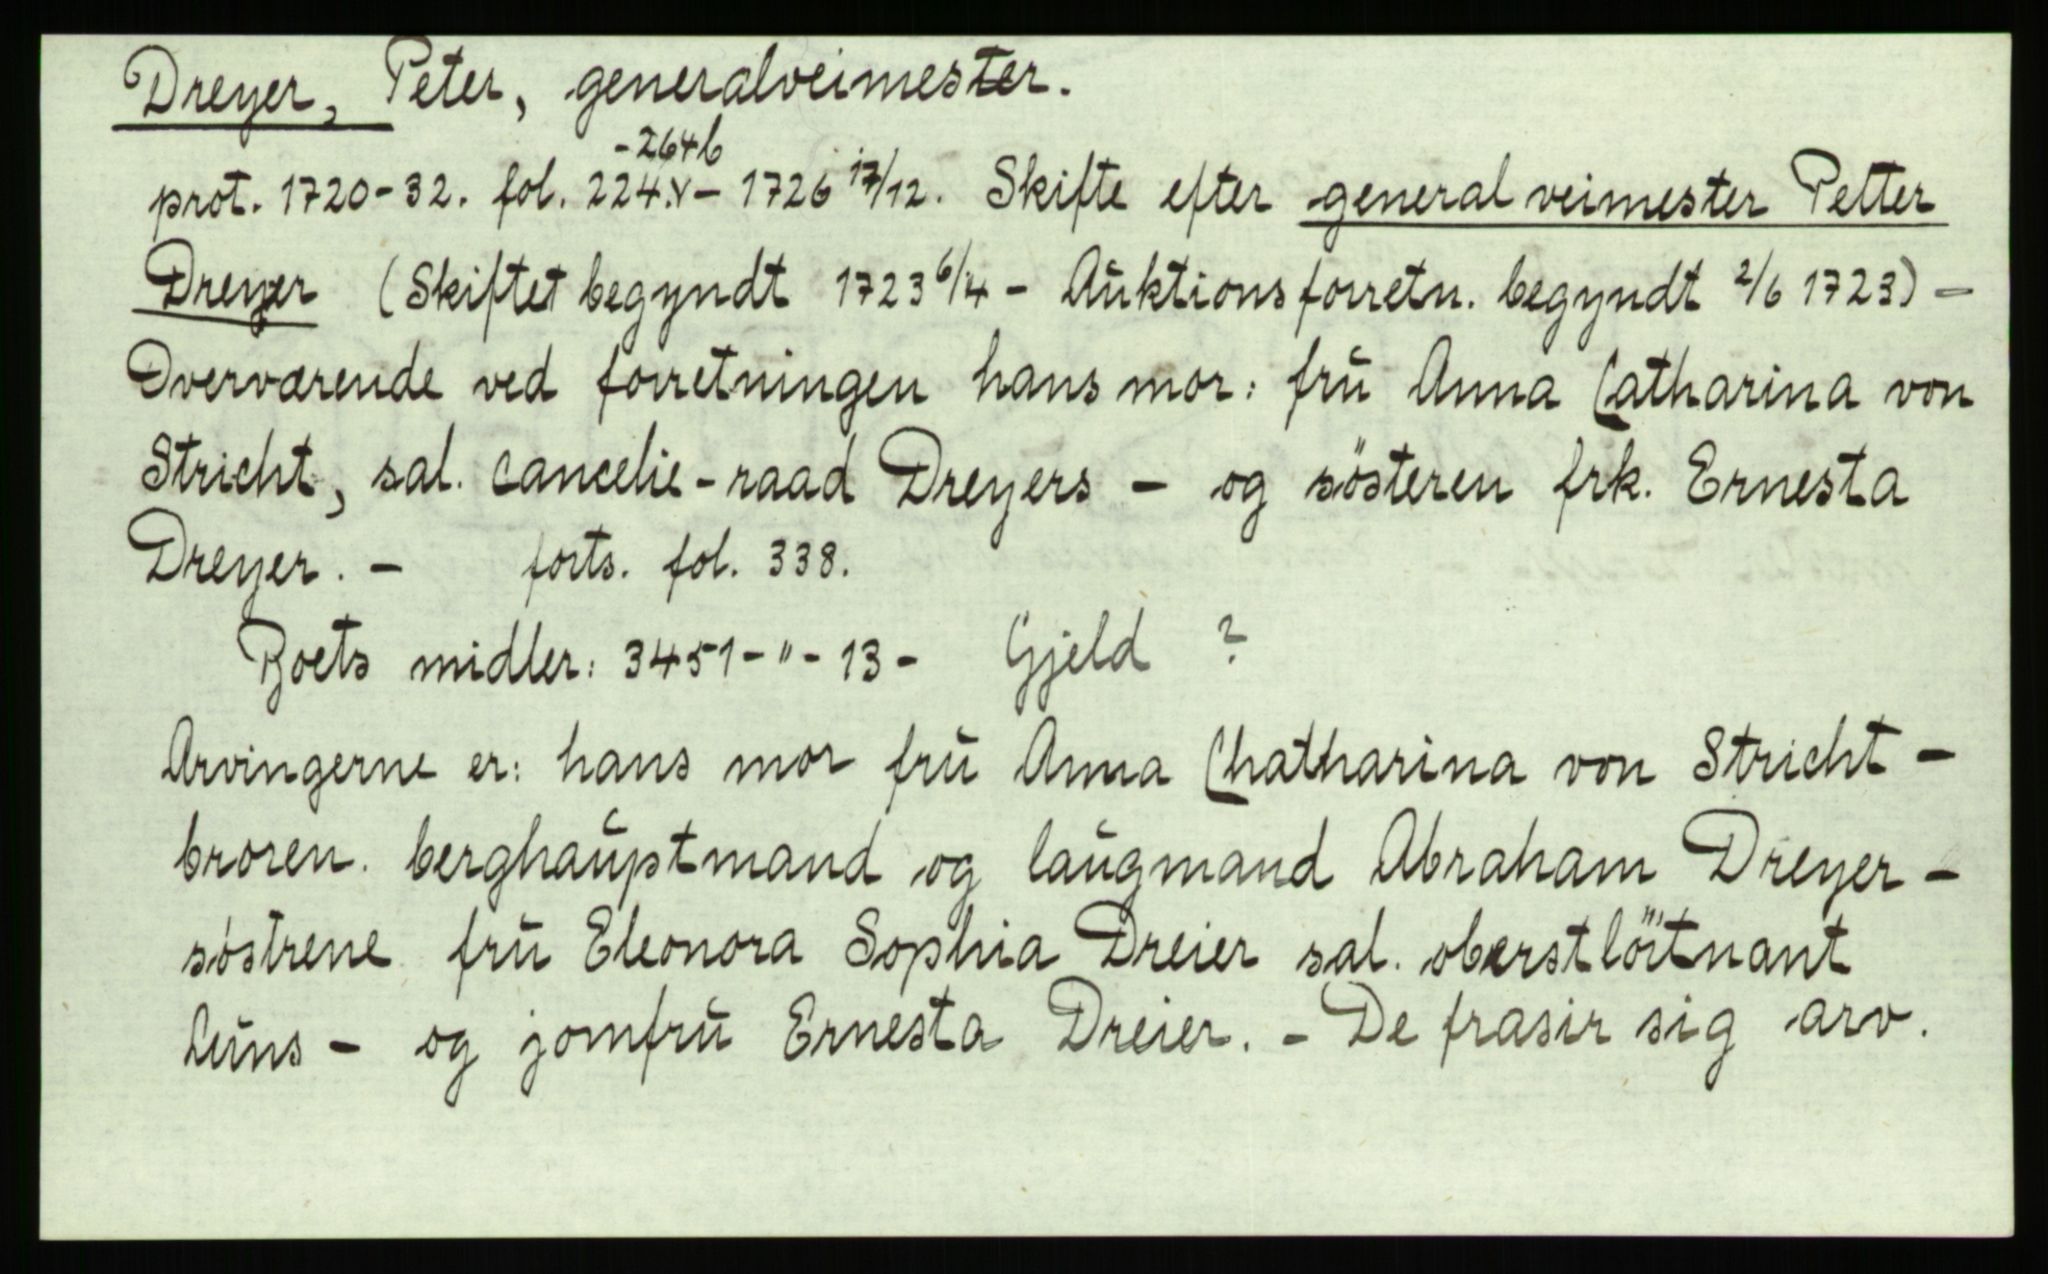 Dreyer, Peter, generalveimester.
-264b
prot. 1720-32. fol. 224.v- 1726 17/12. Skifte efter general veimester Petter
Dreyer (Skiftet begyndt 1723 6/4 - Auktionsforretn. begyndt 2/6 1723) -
Overværende ved forretningen hans mor: fru Anna Catharina von
Stricht, sal. cancelie-raad Dreyers - og sösteren frk. Ernesta
Dreyer. - forts. fol. 338.
Boets midler: 3451-"-13- Gjeld ?
Arvingerne er: hans mor fru Anna Chatharina von Stricht -
broren berghauptmand og laugmand Abraham Dreyer -
söstrene fru Eleonora Sophia Dreier sal. oberstlöitnant
Luns - og jomfru Ernesta Dreier. - De frasir sig arv.